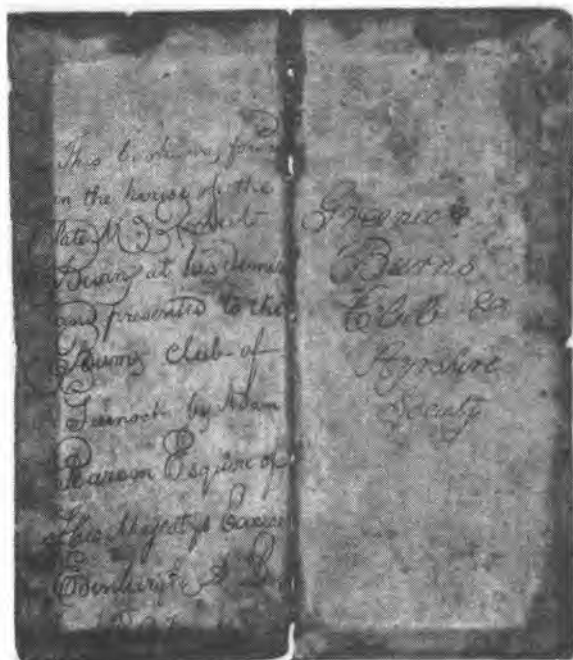 This book was found
in the house of the
late Mr Robert
Burns at his demise
and presented to the
Burns club of
Greenock by Adam
Pearson Esquire of
His Majestys Excise
Edinburgh
Greenock
Burns
Club &
Ayrshire
Society